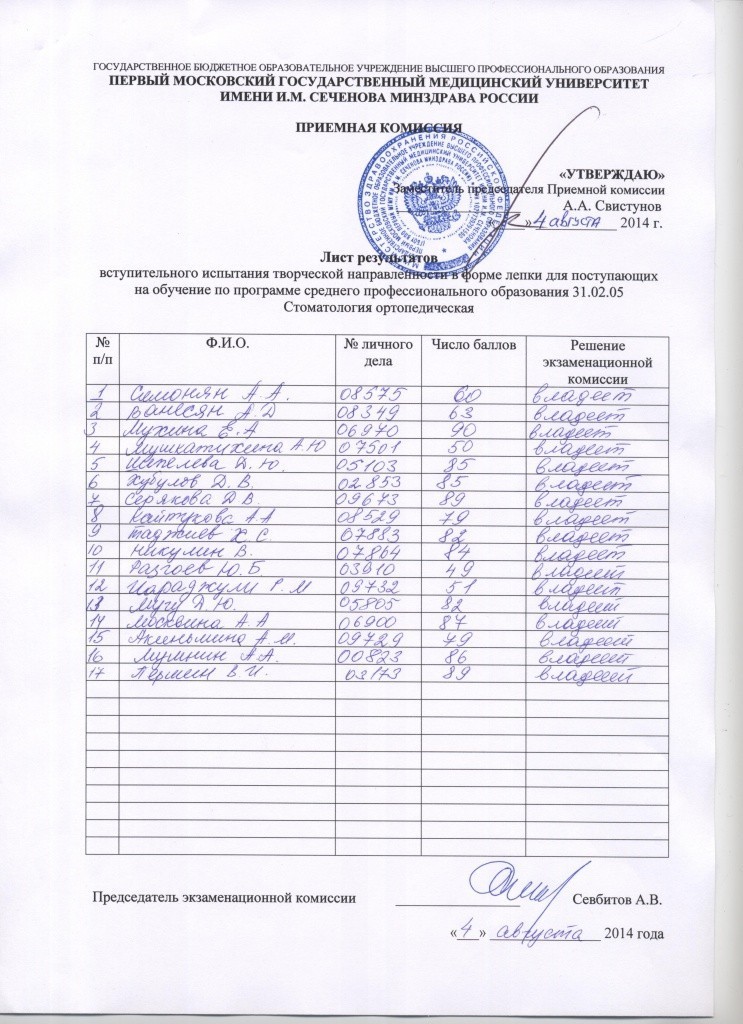 ГОСУДАРСТВЕННОЕ БЮДЖЕТНОЕ ОБРАЗОВАТЕЛЬНОЕ УЧРЕЖДЕНИЕ ВЫСШЕГО ПРОФЕССИОНАЛЬНОГО ОБРАЗОВАНИЯ
ПЕРВЫЙ МОСКОВСКИЙ ГОСУДАРСТВЕННЫЙ МЕДИЦИНСКИЙ УНИВЕРСИТЕТ
ИМЕНИ И.М. СЕЧЕНОВА МИНЗДРАВА РОССИИ
ПРИЕМНАЯ КОМИССИЯ
«УТВЕРЖДАЮ»
Заместитель председателя Приемной комиссии
А.А. Свистунов
» 4 августа 2014 г.
Лист результатов
вступительного испытания творческой направленности в форме лепки для поступающих
на обучение по программе среднего профессионального образования 31.02.05
Стоматология ортопедическая
№ п/п Ф.И.О. № личного дела Число баллов Решение экзаменационной комиссии
1 Симонян А.А. 08575 60 владеет
2 Ванесян А.Д 08349 63 владеет
3 Мухина Е.А 06970 90 владеет
4 А.Ю 07501 50 владеет
5 Шапелева Д.Ю. 05103 85 владеет
6 Хубулов Д.В. 02853 85 владеет
7 Серякова Д В. 09673 89 владеет
8 Кайтукова А А 08529 79 владеет
9 Таджиев Х С. 07883 82 владеет
10 Никулин В. 07864 84 владеет
11 Разгоев Ю.Б 03910 49 владеет
12 Г. М 09732 51 владеет
13 Д Ю. 05805 82 владеет
14 Москвина А.А 06900 87 владеет
15 А.М. 09729 79 владеет
16 А.А. 00823 86 владеет
17 В.И. 03173 89 владеет
Председатель экзаменационной комиссии Севбитов А.В.
« 4 » августа 2014 года